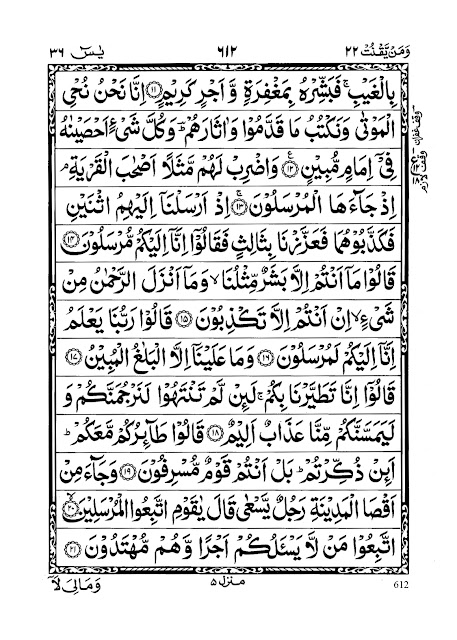 وَمَنْ يَّقْنُتْ ٢٢ ٦١٢ يٰسٓ ٣٦
بِالْغَيْبِ ۚ فَبَشِّرْهُ بِمَغْفِرَةٍ وَّ اَجْرٍ كَرِيْمٍ ﴿۱۱﴾ اِنَّا نَحْنُ نُحْىِ
الْمَوْتٰى وَنَكْتُبُ مَا قَدَّمُوْا وَاٰثَارَهُمْ ؕ وَكُلَّ شَىْءٍ اَحْصَيْنٰهُ
فِىْۤ اِمَامٍ مُّبِيْنٍ ﴿۱۲﴾ وَاضْرِبْ لَهُمْ مَّثَلًا اَصْحٰبَ الْقَرْيَةِ ۘ
اِذْ جَآءَهَا الْمُرْسَلُوْنَ ﴿۱۳﴾ اِذْ اَرْسَلْنَاۤ اِلَيْهِمُ اثْنَيْنِ
فَكَذَّبُوْهُمَا فَعَزَّزْنَا بِثَالِثٍ فَقَالُوْۤا اِنَّاۤ اِلَيْكُمْ مُّرْسَلُوْنَ ﴿۱۴﴾
قَالُوْا مَاۤ اَنْتُمْ اِلَّا بَشَرٌ مِّثْلُنَا ۙ وَمَاۤ اَنْزَلَ الرَّحْمٰنُ مِنْ
شَىْءٍ ۙ اِنْ اَنْتُمْ اِلَّا تَكْذِبُوْنَ ﴿۱۵﴾ قَالُوْا رَبُّنَا يَعْلَمُ
اِنَّاۤ اِلَيْكُمْ لَمُرْسَلُوْنَ ﴿۱۶﴾ وَمَا عَلَيْنَاۤ اِلَّا الْبَلٰغُ الْمُبِيْنُ ﴿۱۷﴾
قَالُوْۤا اِنَّا تَطَيَّرْنَا بِكُمْ ۚ لَئِنْ لَّمْ تَنْتَهُوْا لَنَرْجُمَنَّكُمْ وَ
لَيَمَسَّنَّكُمْ مِّنَّا عَذَابٌ اَلِيْمٌ ﴿۱۸﴾ قَالُوْا طَآئِرُكُمْ مَّعَكُمْ ؕ
اَئِنْ ذُكِّرْتُمْ ؕ بَلْ اَنْتُمْ قَوْمٌ مُّسْرِفُوْنَ ﴿۱۹﴾ وَجَآءَ مِنْ
اَقْصَا الْمَدِيْنَةِ رَجُلٌ يَّسْعٰى قَالَ يٰقَوْمِ اتَّبِعُوا الْمُرْسَلِيْنَ ﴿۲۰﴾
اتَّبِعُوْا مَنْ لَّا يَسْئَلُكُمْ اَجْرًا وَّهُمْ مُّهْتَدُوْنَ ﴿۲۱﴾
منزل ٥
وَمَالِىَ لَآ
612